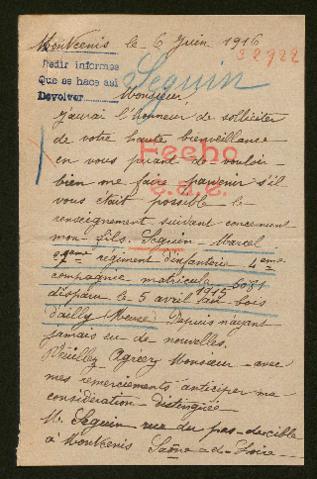 Montcenis le 6 Juin 1916
32922
Pedir informes
Que se hace aui
Devolver
Seguin
Monsieur
j'aurai l'honneur de solliciter
de votre haute bienveillance
en vous priant de vouloir
Hecho
bien me faire parvenir s'il
e.a.e.
vous était possible le
renseignement suivant concernant
mon fils. Seguin Marcel
régiment d'infanterie 4eme
compagnie matricule 6031
disparu le 5 avril 1915 au bois
d'ailly Meuse. Depuis n'ayant
jamais eu de nouvelles.
Veuillez Agréez Monsieur avec
mes remerciements anticiper ma
considération distinguée
M. Seguin rue du pas-ducible
à Montcenis Saône-et-Loire